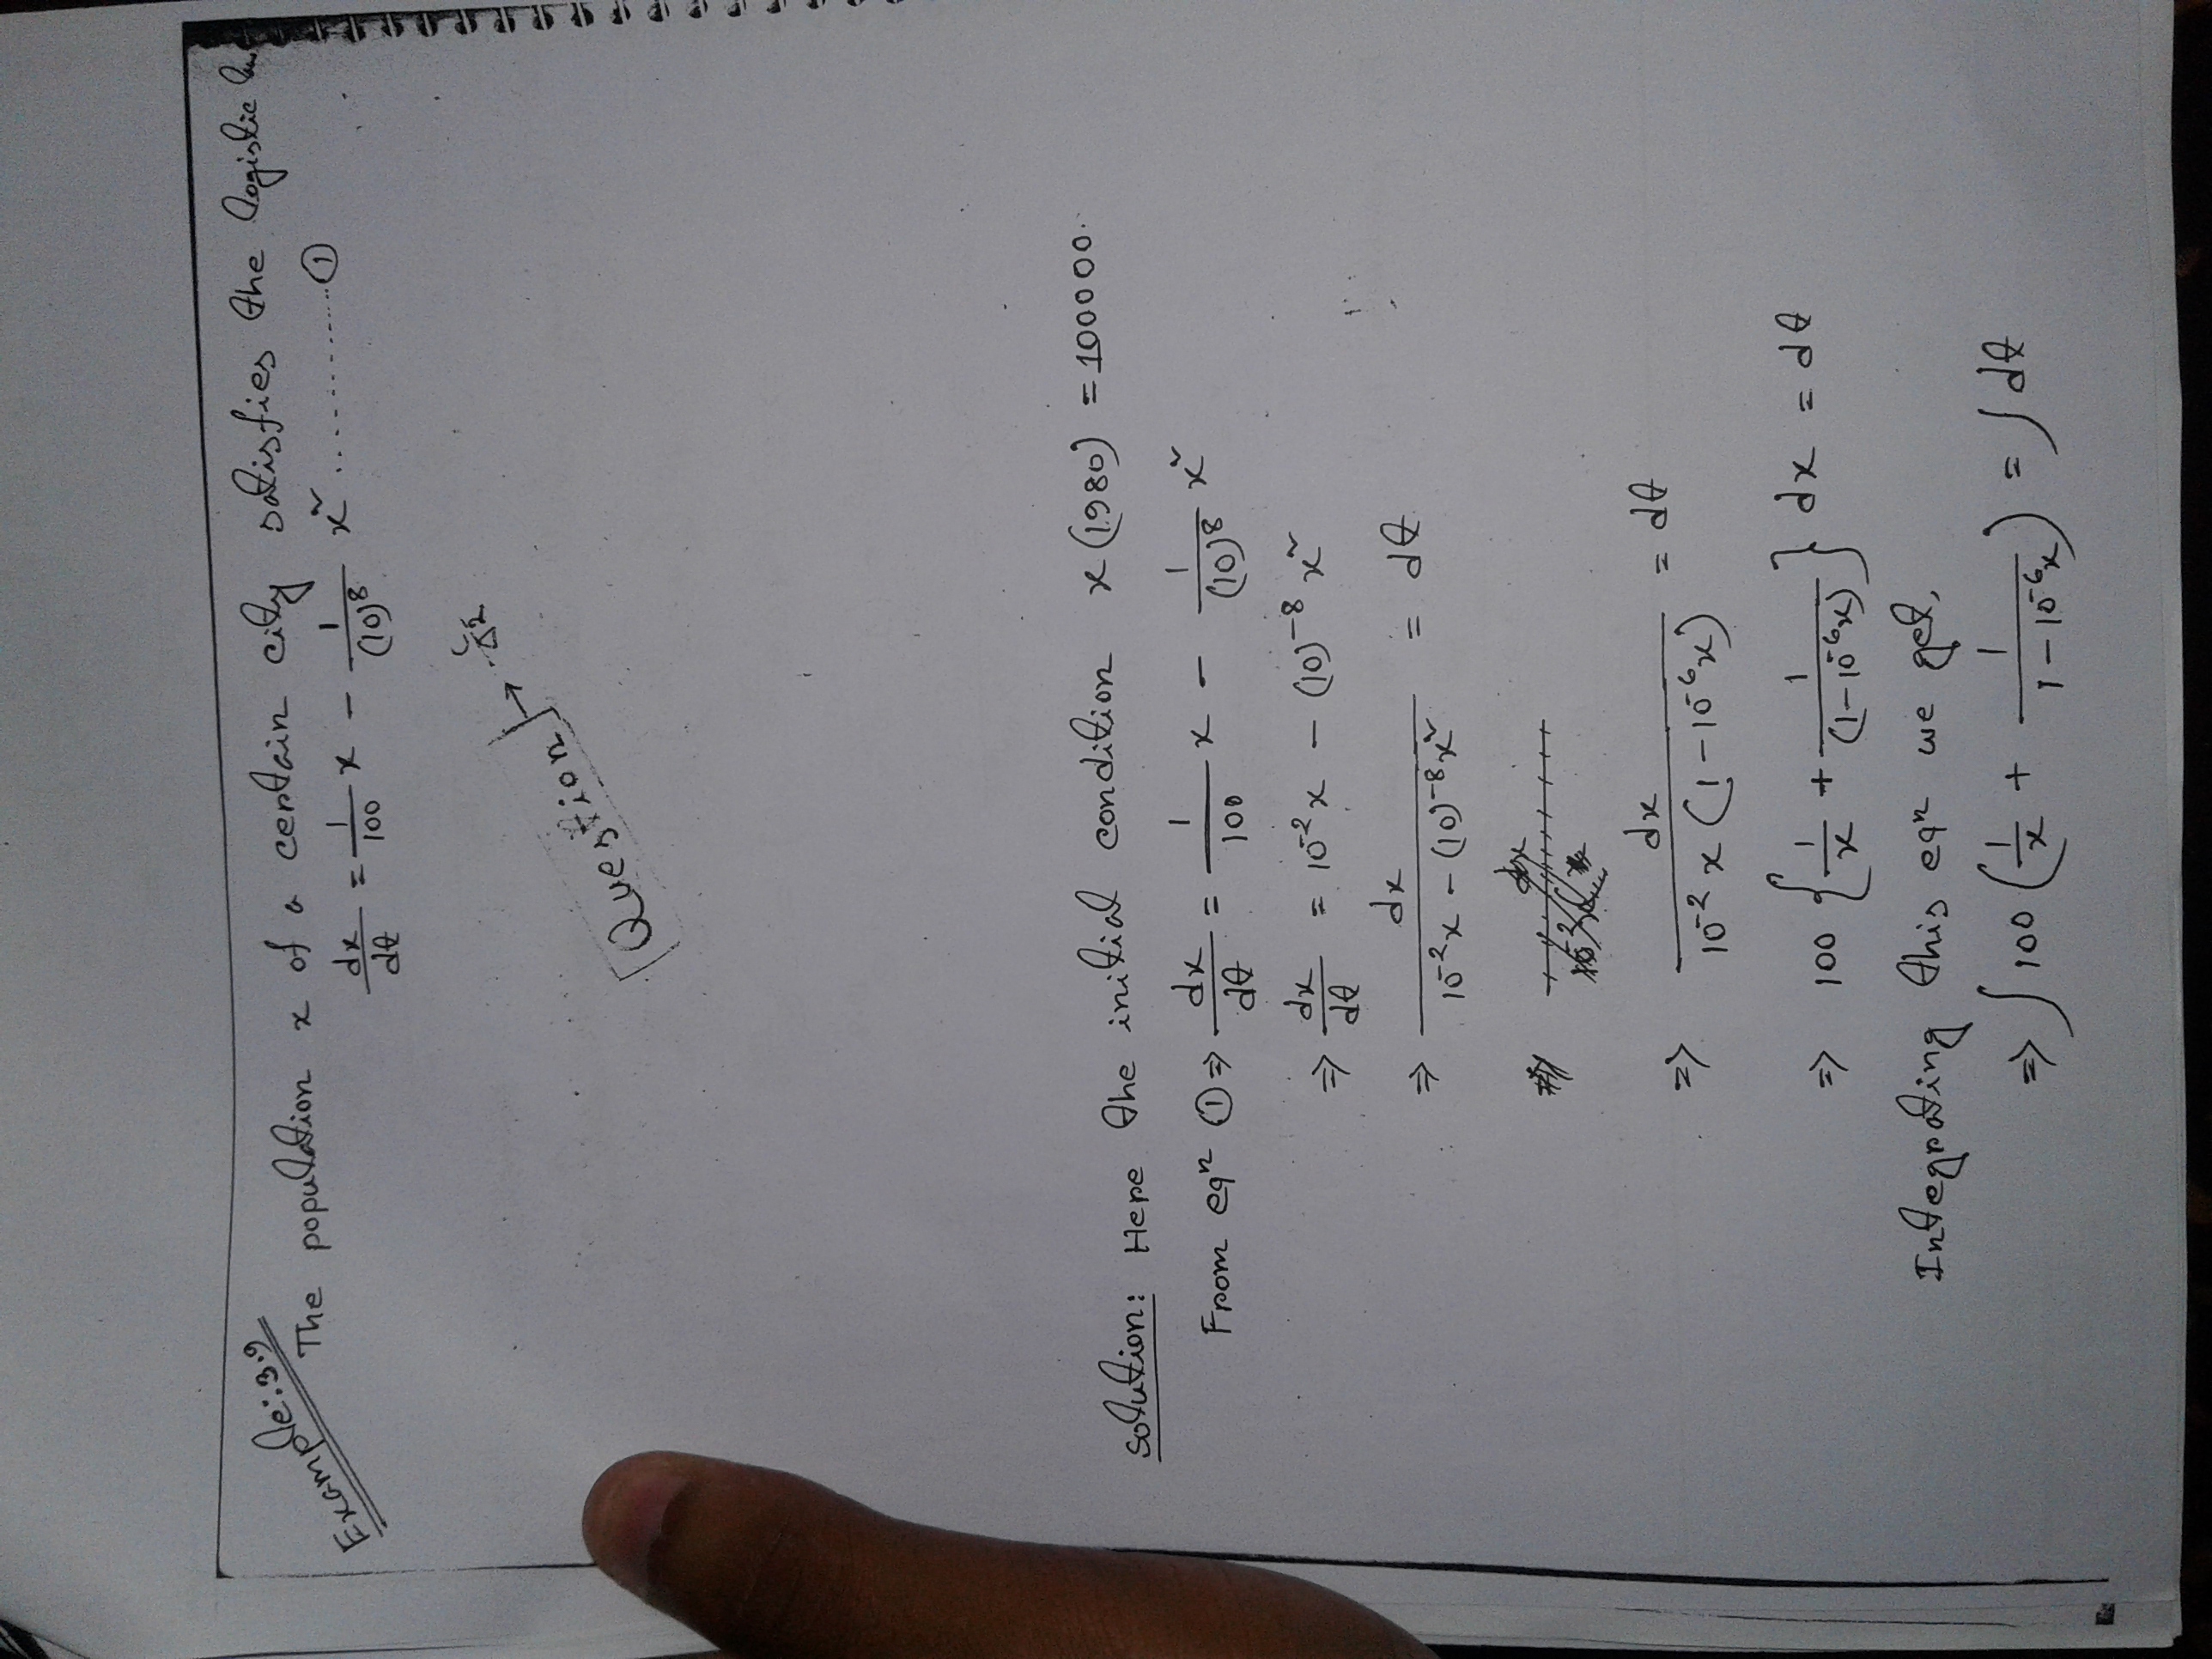 Example: 3.9
The population x of a certain city satisfies the logistic
dx/dt = 1/100 x - 1/(10)^8 x² ............ ①
[Question] →
Solution: Here the initial condition x(1980) = 100000.
From eqⁿ ① ⇒ dx/dt = 1/100 x - 1/(10)^8 x²
⇒ dx/dt = 10^-2 x - (10)^-8 x²
⇒ dx/(10^-2 x - (10)^-8 x²) = dt
⇒ dx/(10^-2 x (1 - 10^-6 x)) = dt
⇒ 100 {1/x + 1/(1 - 10^-6 x)} dx = dt
Integrating this eqⁿ we get,
⇒ ∫ 100 (1/x + 1/(1 - 10^-6 x)) = ∫ dt